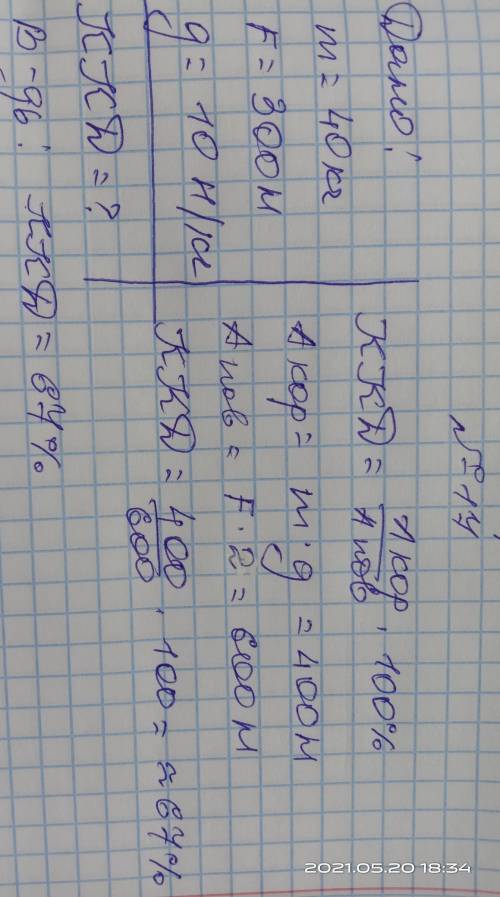 № 14
Дано:
m = 40 кг
F = 300 Н
g = 10 Н/кг
ККД = ?
ККД = Aкор/Aпов · 100%
Aкор = m · g = 400 Н
Aпов = F · 2 = 600 Н
ККД = 400/600 · 100 = ≈ 67%
В-дь: ККД = 67%
2021.05.20 18:34